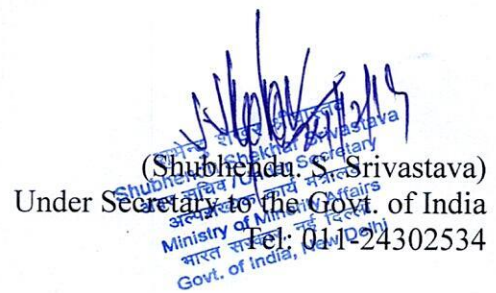 (Shubhendu. S. Srivastava)
Under Secretary to the Govt. of India
Tel: 011-24302534
शुभेन्दु शेखर श्रीवास्तव
Shubhendu Shekhar Srivastava
अवर सचिव / Under Secretary
अल्पसंख्यक कार्य मंत्रालय
Ministry of Minority Affairs
भारत सरकार, नई दिल्ली
Govt. of India, New Delhi